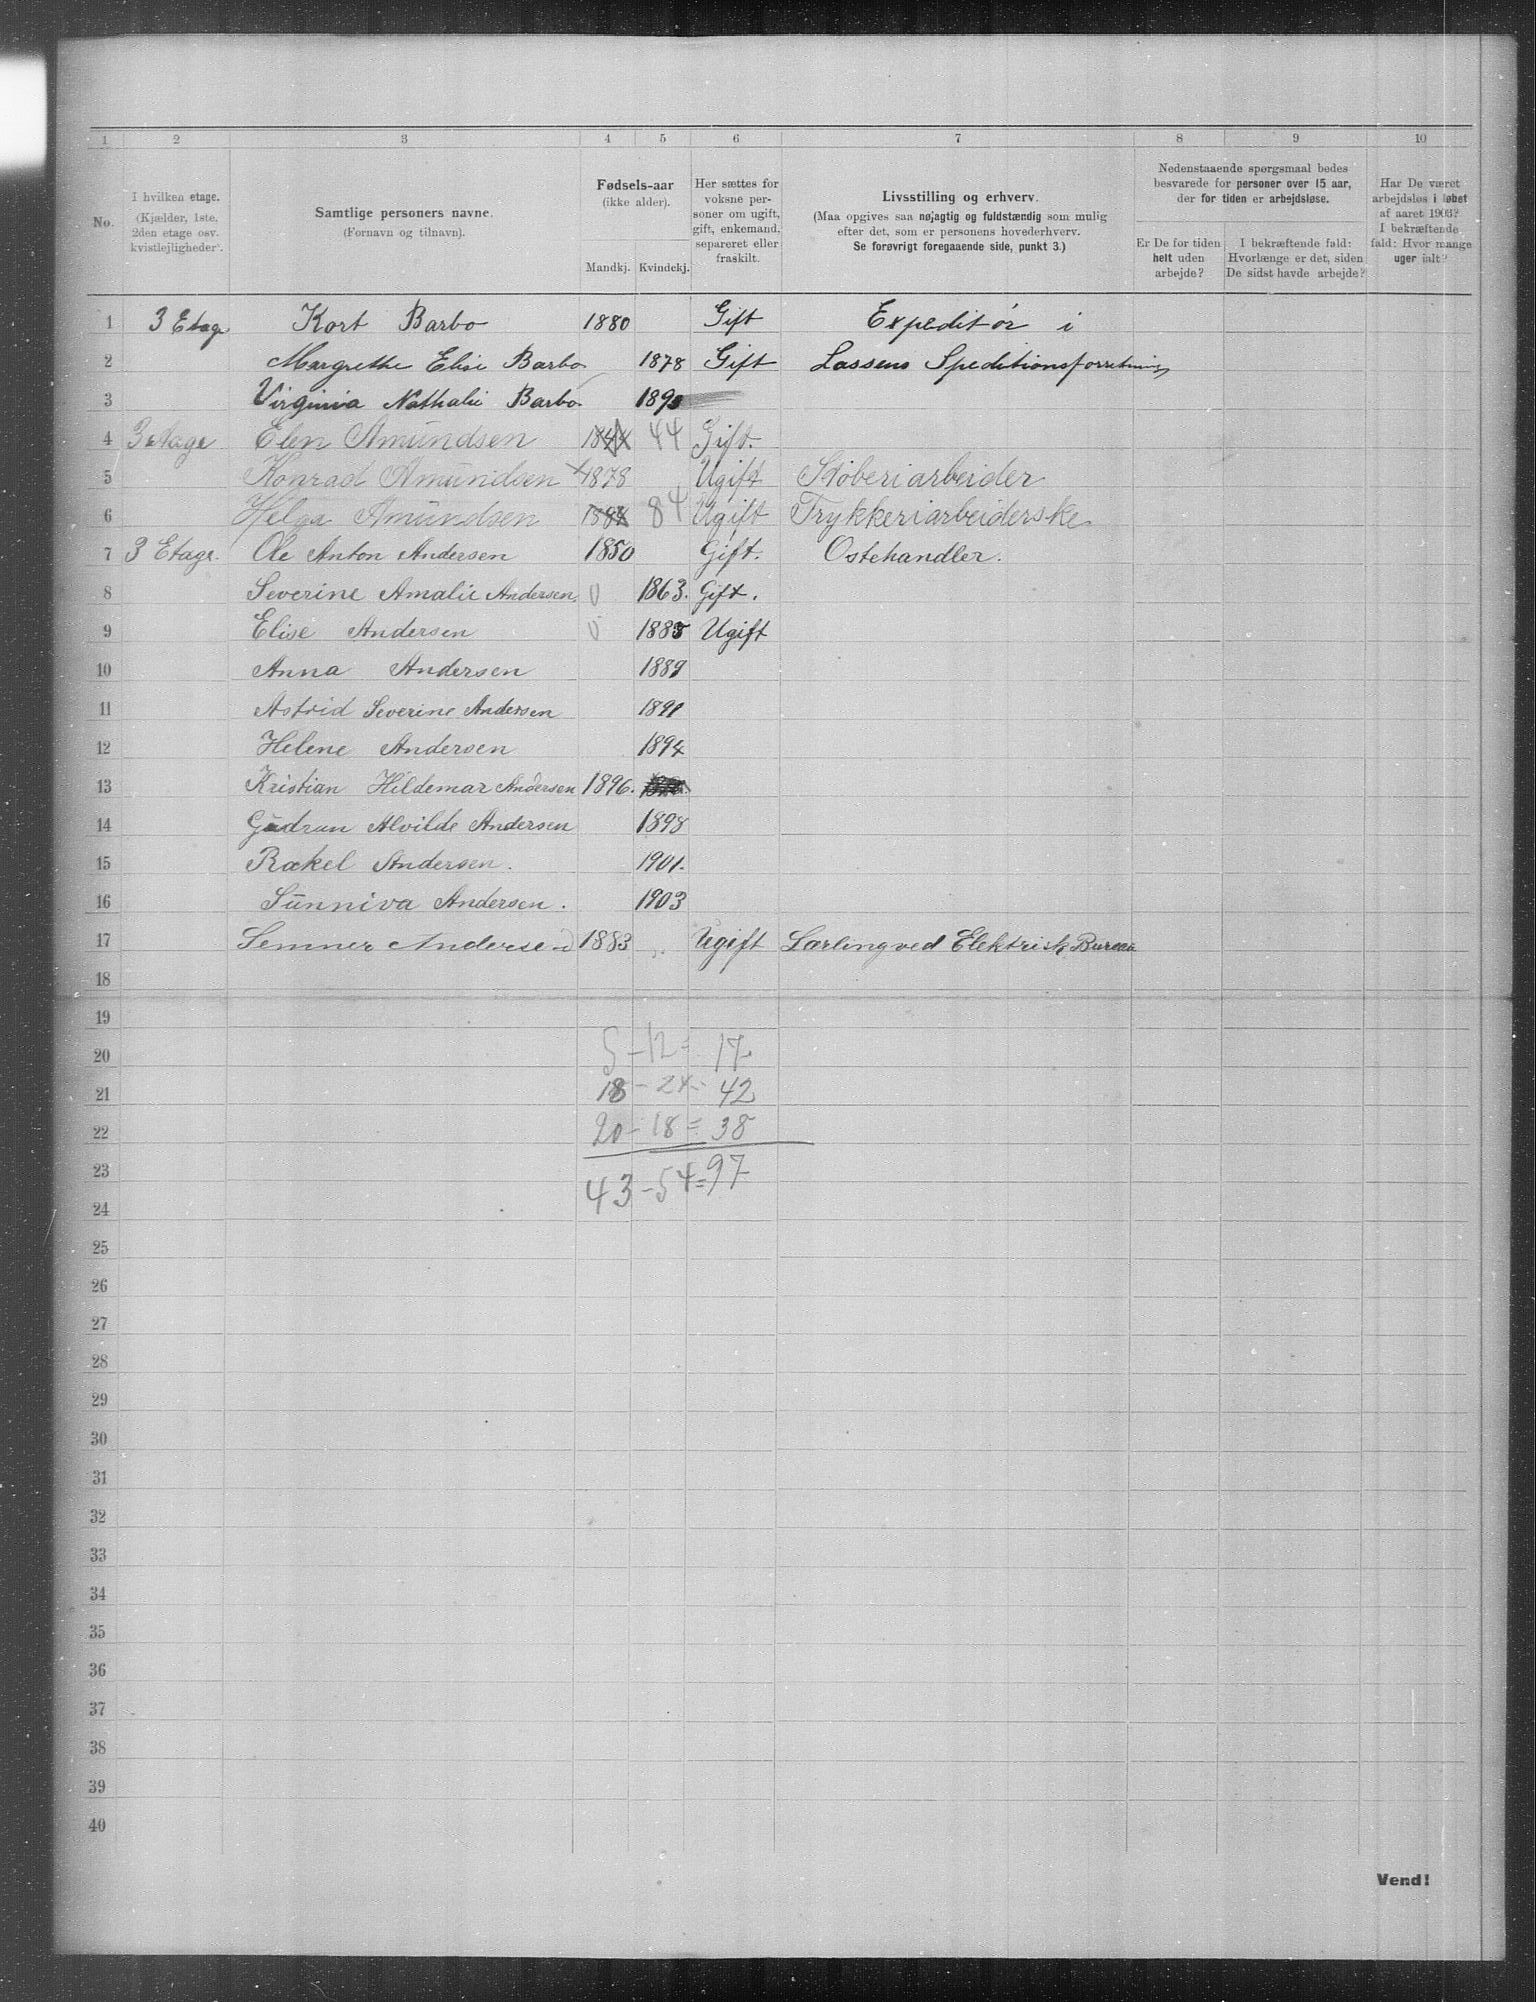 1 2 3 4 5 6 7 8 9 10
No.
I hvilken etage.
(Kjælder, 1ste,
2den etage osv.
kvistlejligheder).
Samtlige personers navne.
(Fornavn og tilnavn).
Fødsels-aar
(ikke alder).
Mandkj. Kvindekj.
Her sættes for
voksne per-
soner om ugift,
gift, enkemand,
separeret eller
fraskilt.
Livsstilling og erhverv.
(Maa opgives saa nøjagtig og fuldstændig som mulig
efter det, som er personens hovederhverv.
Se forøvrigt foregaaende side, punkt 3.)
Nedenstaaende spørgsmaal bedes
besvarede for personer over 15 aar,
der for tiden er arbejdsløse.
Er De for tiden
helt uden
arbejde?
I bekræftende fald:
Hvorlænge er det, siden
De sidst havde arbejde?
Har De været
arbejdsløs i løbet
af aaret 1903?
I bekræftende
fald: Hvor mange
uger ialt?
1 3 Etage Kort Barbo 1880 Gift Expeditør i
2 Margrethe Elise Barbo 1878 Gift Lassens Speditionsforretning
3 Virginia Nathalie Barbo
4 3 etage Elen Amundsen 44 Gift.
5 Konrad Amundsen 1878 Ugift Støberiarbeider
6 Helga Amundsen 84 Ugift Trykkeriarbeiderske
7 3 Etage. Ole Anton Andersen 1850 Gift. Ostehandler.
8 Severine Amalie Andersen 1863. Gift.
9 Elise Andersen 1885 Ugift
10 Anna Andersen 1889
11 Astrid Severine Andersen 1891
12 Helene Andersen 1894
13 Kristian Hildemar Andersen 1896.
14 Gudrun Alvilde Andersen 1898
15 Rakel Andersen. 1901.
16 Sunniva Andersen. 1903
17 Semner Andersen 1883 Ugift Lærling ved Elektrisk Bureau
18
19
20 5 - 12 = 17
21 18 - 24 = 42
22 20 - 18 = 38
23 43 - 54 = 97
24
25
26
27
28
29
30
31
32
33
34
35
36
37
38
39
40
Vend!